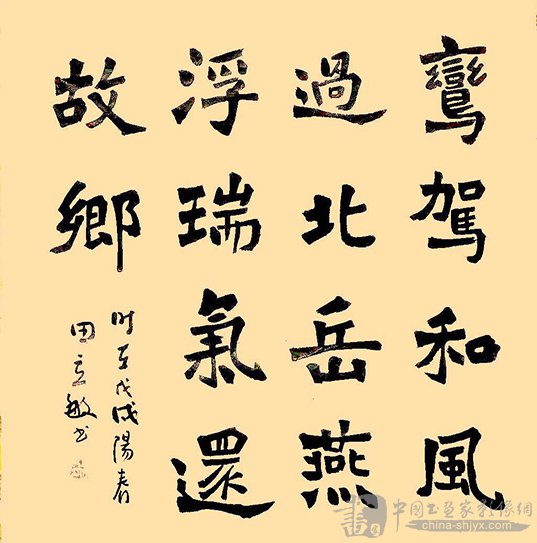 鸞駕和風
過北岳燕
浮瑞氣還
故鄉
时在戊戌陽春
田立敏书
中國书画家影像網
china-shjyx.com